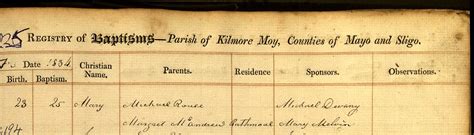 25 REGISTRY OF Baptisms—Parish of Kilmore Moy, Counties of Mayo and Sligo.
1834
Birth. Baptism. Christian Name. Parents. Residence Sponsors. Observations.
23 25 Mary Michael Rouse Michael Devany
Margret McAndrew Rathmoal Mary Melvin